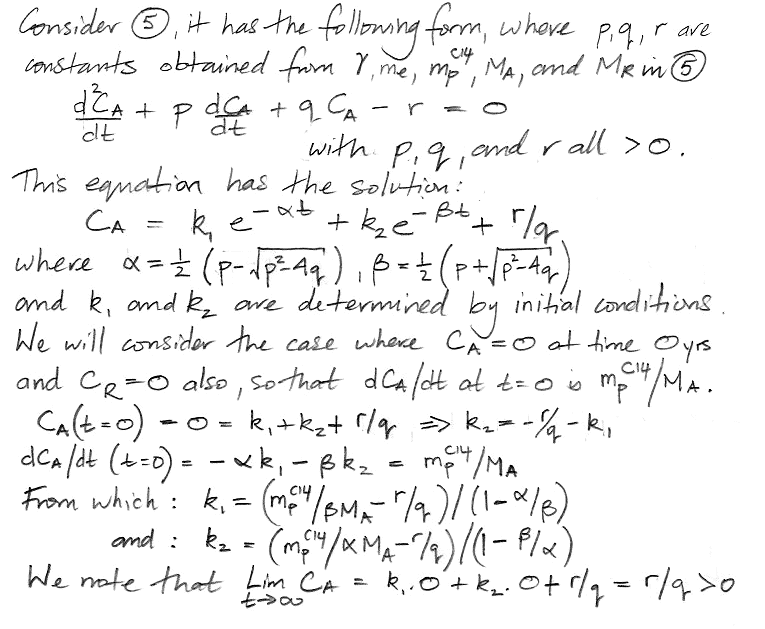 Consider ⑤, it has the following form, where p,q,r are
constants obtained from γ, me, mp^C14, MA, and MR in ⑤
d²CA/dt + p dCA/dt + q CA − r = 0
with p, q, and r all > 0.
This equation has the solution:
CA = k₁ e^−αt + k₂ e^−βt + r/q
where α = ½ (p−√p²−4q), β = ½ (p+√p²−4q)
and k₁ and k₂ are determined by initial conditions.
We will consider the case where CA = 0 at time 0 yrs
and CR = 0 also, so that dCA/dt at t = 0 is mp^C14/MA.
CA(t=0) = 0 = k₁ + k₂ + r/q ⇒ k₂ = −r/q − k₁
dCA/dt (t=0) = −αk₁ − βk₂ = mp^C14/MA
From which : k₁ = (mp^C14/βMA − r/q)/(1−α/β)
and : k₂ = (mp^C14/αMA − r/q)/(1−β/α)
We note that Lim t→∞ CA = k₁.0 + k₂.0 + r/q = r/q > 0